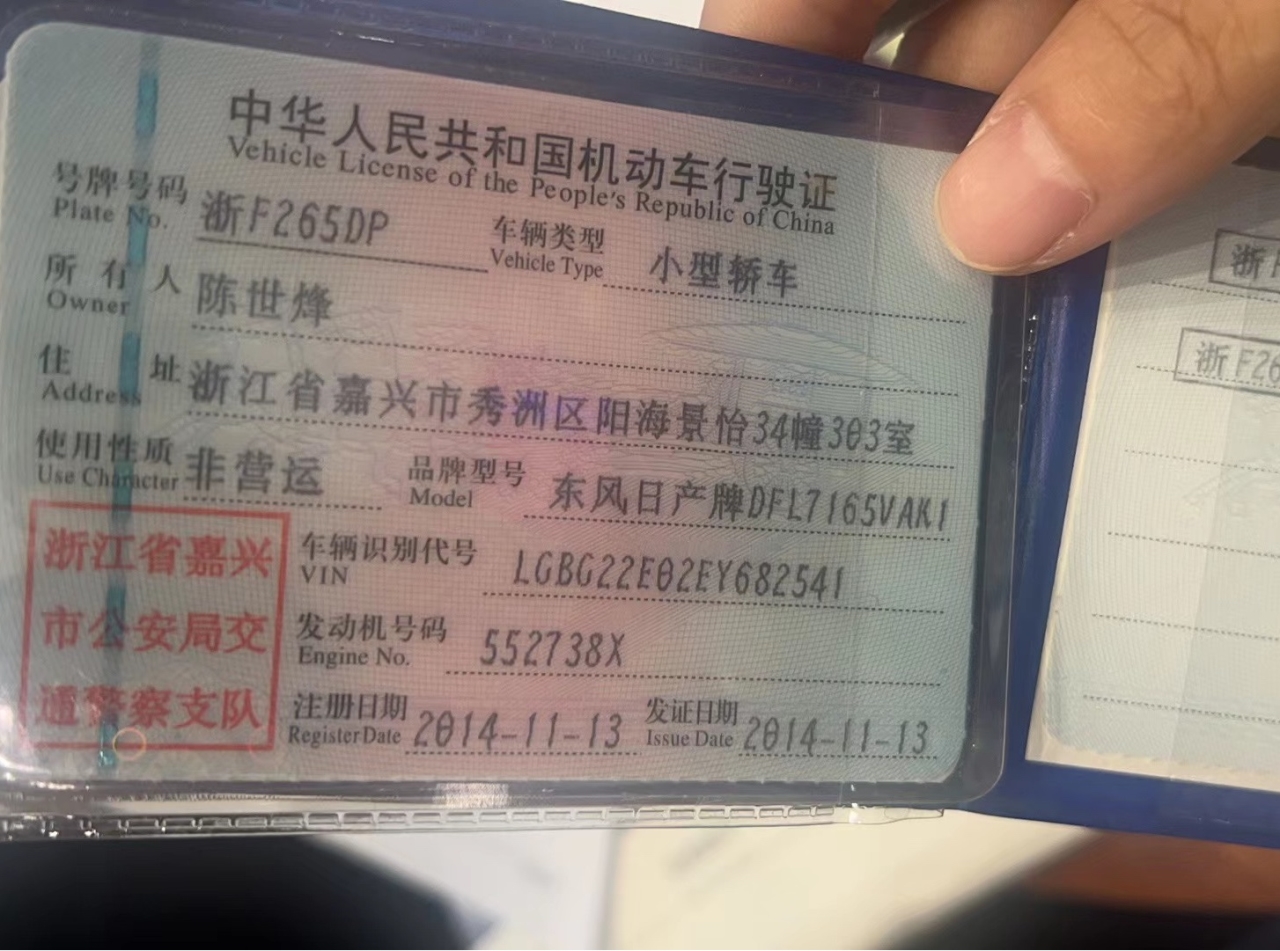 中华人民共和国机动车行驶证
Vehicle License of the People's Republic of China
号牌号码 浙F265DP 车辆类型 小型轿车
Plate No. Vehicle Type
所有人 陈世烽
Owner
住址 浙江省嘉兴市秀洲区阳海景怡34幢303室
Address
使用性质 非营运 品牌型号 东风日产牌DFL7165VAK1
Use Character Model
浙江省嘉兴
市公安局交
通警察支队
车辆识别代号 LGBG22E02EY682541
VIN
发动机号码 552738X
Engine No.
注册日期 2014-11-13 发证日期 2014-11-13
Register Date Issue Date
浙F
浙F26